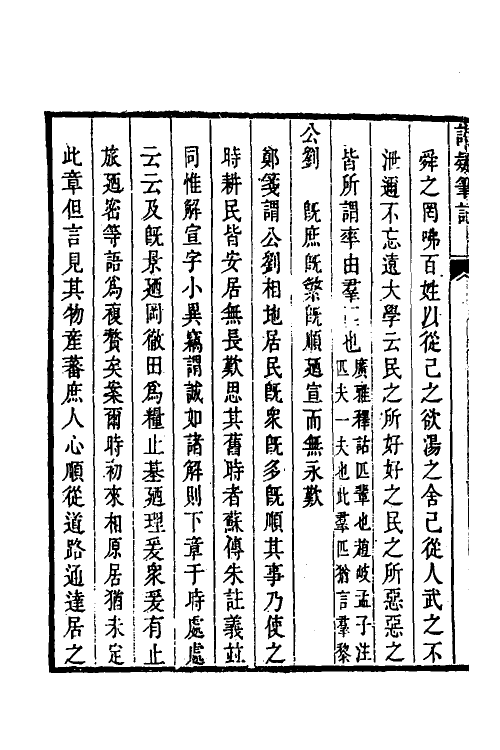 舜之罔咈百姓以從己之欲湯之舍己從人武之不
泄邇不忘遠大學云民之所好好之民之所惡惡之
皆所謂率由羣匹也
廣雅釋詁匹輩也趙岐孟子注
匹夫一夫也此羣匹猶言羣黎
公劉　旣庶旣繁旣順廼宣而無永歎
鄭箋謂公劉相地居民旣衆旣多旣順其事乃使之
時耕民皆安居無長歎思其舊時者蘇傳朱註義並
同惟解宣字小異竊謂誠如諸解則下章于時處處
云云及旣景廼岡徹田爲糧止基廼理爰衆爰有止
旅廼密等語爲複贅矣案爾時初來相原居猶未定
此章但言見其物產蕃庶人心順從道路通達居之